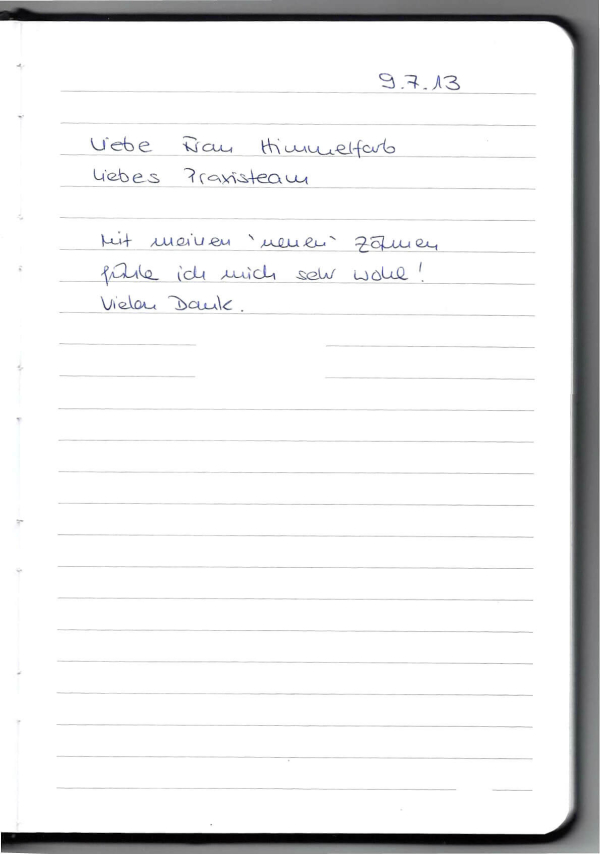 9.7.13
Liebe Frau Himmelfarb
Liebes Praxisteam
Mit meinen 'neuen' Zähnen
fühle ich mich sehr wohl!
Vielen Dank.